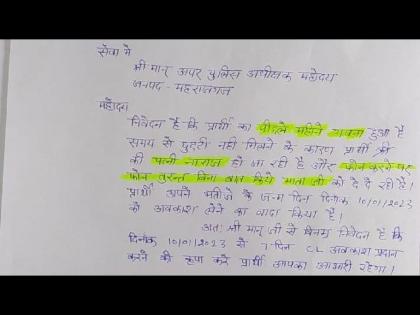 सेवा में
श्री मान् अपर पुलिस अधीक्षक महोदय
जनपद - महराजगंज
महोदय
निवेदन है कि प्रार्थी का पिछले महीने गवना हुआ है
समय से छुट्टी नहीं मिलने के कारण प्रार्थी की
की पत्नी नाराज हो जा रही है और फोन करने पर
फोन तुरन्त बिना बात किये माता जी को दे दे रही है।
प्रार्थी अपने भतीजे के जन्म दिन दिनांक 10/01/2023
को अवकाश लेने का वादा किया है।
अतः श्री मान् जी से विनम्र निवेदन है कि
दिनांक 10/01/2023 से 7 दिन CL अवकाश प्रदान
करने की कृपा करें प्रार्थी आपका आभारी रहेगा।